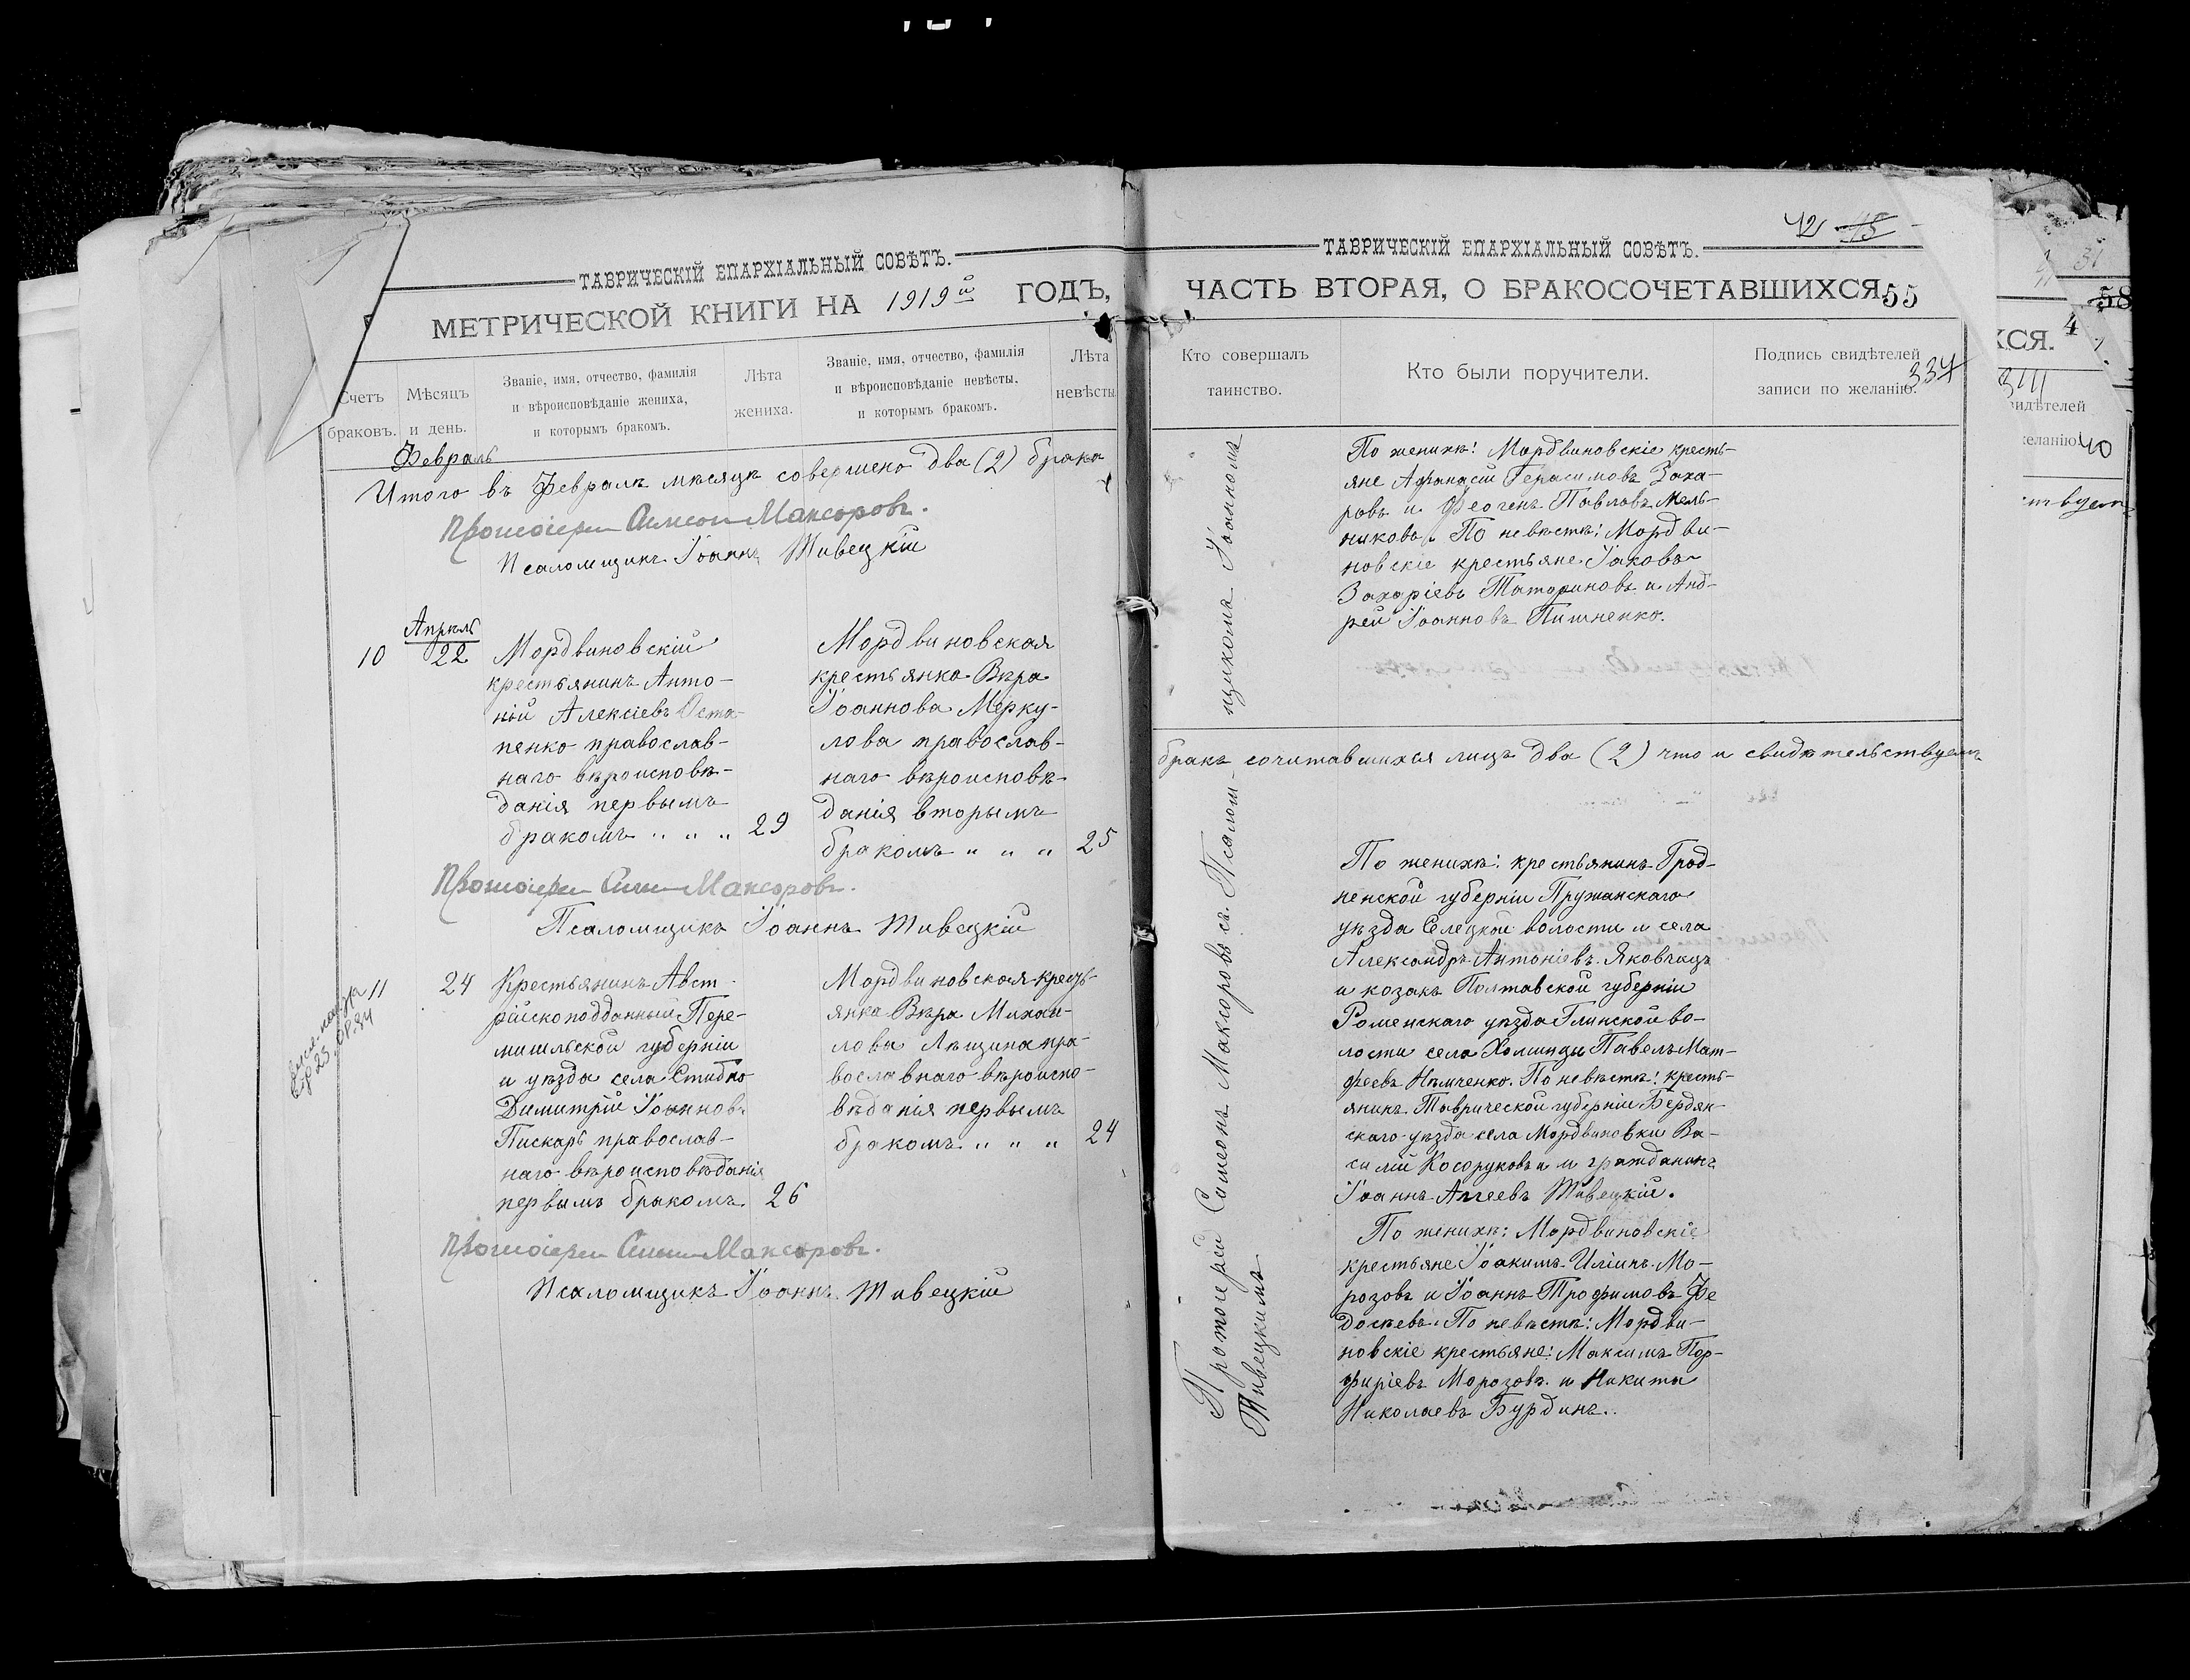 ТАВРИЧЕСКІЙ ЕПАРХІАЛЬНЫЙ СОВѢТЪ.
МЕТРИЧЕСКОЙ КНИГИ НА 1919й ГОДЪ,
Счетъ браковъ.
Мѣсяцъ и день.
Званіе, имя, отчество, фамилія
и вѣроисповѣданіе жениха,
и которымъ бракомъ.
Лѣта
жениха.
Званіе, имя, отчество, фамилія
и вѣроисповѣданіе невѣсты.
и которымъ бракомъ.
Лѣта
невѣсты
Февраль
Итого въ Февралѣ мѣсяцѣ совершено два (2) брака
Протоіерей Симеонъ Максоровъ.
Псаломщикъ Іоаннъ Тивецкій
10
Апрѣль
22
Мордвиновскій
крестьянинъ Анто-
ній Алексіевъ Оста-
пенко православ-
наго вѣроисповѣ-
данія первымъ
бракомъ " " " 29
Мордвиновская
крестьянка Вѣра
Іоаннова Мерку-
лова православ-
наго вѣроисповѣ-
данія вторымъ
бракомъ " " " 25
Протоіерей Симеонъ Максоровъ.
Псаломщикъ Іоаннъ Тивецкій
11
24
Крестьянинъ Авст-
рійскоподданный Пере-
мишльской губерніи
и уѣзда села Стибно
Димитрій Іоанновъ
Пискаръ православ-
наго вѣроисповѣданія
первымъ бракомъ. 26
Мордвиновская кресть-
янка Вѣра Михаи-
лова Лещина пра-
вославнаго вѣроиспо-
вѣданія первымъ
бракомъ " " " 24
Протоіерей Симеонъ Максоровъ.
Псаломщикъ Іоаннъ Тивецкій
42 45
ТАВРИЧЕСКІЙ ЕПАРХІАЛЬНЫЙ СОВѢТЪ.
ЧАСТЬ ВТОРАЯ, О БРАКОСОЧЕТАВШИХСЯ 55
Кто совершалъ
таинство.
Кто были поручители.
Подпись свидѣтелей
записи по желанію.
334
Протоіерей Симеонъ Максоровъ съ Псалом-
щикомъ Іоанномъ
Тивецкимъ
По женихѣ: Мордвиновскіе кресть-
яне Афанасій Герасимовъ Заха-
ровъ и Феогенъ Павловъ Мель-
никовъ. По невѣстѣ: Мордви-
новскіе крестьяне Іаковъ
Захаріевъ Татариновъ и Анд-
рей Іоанновъ Пишненко.
бракъ сочитавшихся лицъ два (2) что и свидѣтельствуемъ
По женихѣ: крестьянинъ Грод-
ненской губерніи Пружанскаго
уѣзда Селецкой волости и села
Александръ Антоніевъ Яковчицъ
и козакъ Полтавской губерніи
Роменскаго уѣзда Глинской во-
лости села Хоминцы Павелъ Мат-
феевъ Нѣмченко. По невѣстѣ: кресть-
янинъ Таврической губерніи Бердян-
скаго уѣзда села Мордвиновки Ва-
силій Косоруковъ и гражданинъ
Іоаннъ Аггеевъ Тивецкій.
По женихѣ: Мордвиновскіе
крестьяне Іоакимъ Иліинъ Мо-
розовъ и Іоаннъ Трофимовъ Фе
досѣевъ. По невѣстѣ: Мордви-
новскіе крестьяне: Максимъ Пор-
фиріевъ Морозовъ и Никита
Николаевъ Бурдинъ.
31
58
ХСЯ.
видѣтелей
желанію.
40